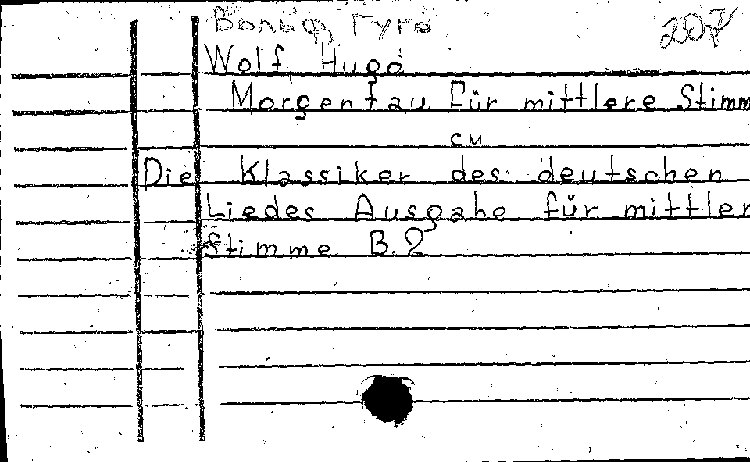 Вольф, Гуго 207
Wolf, Hugo
Morgentau für mittlere Stimm
см
Die Klassiker des deutschen
Liedes Ausgabe für mittler
Stimme B. 2